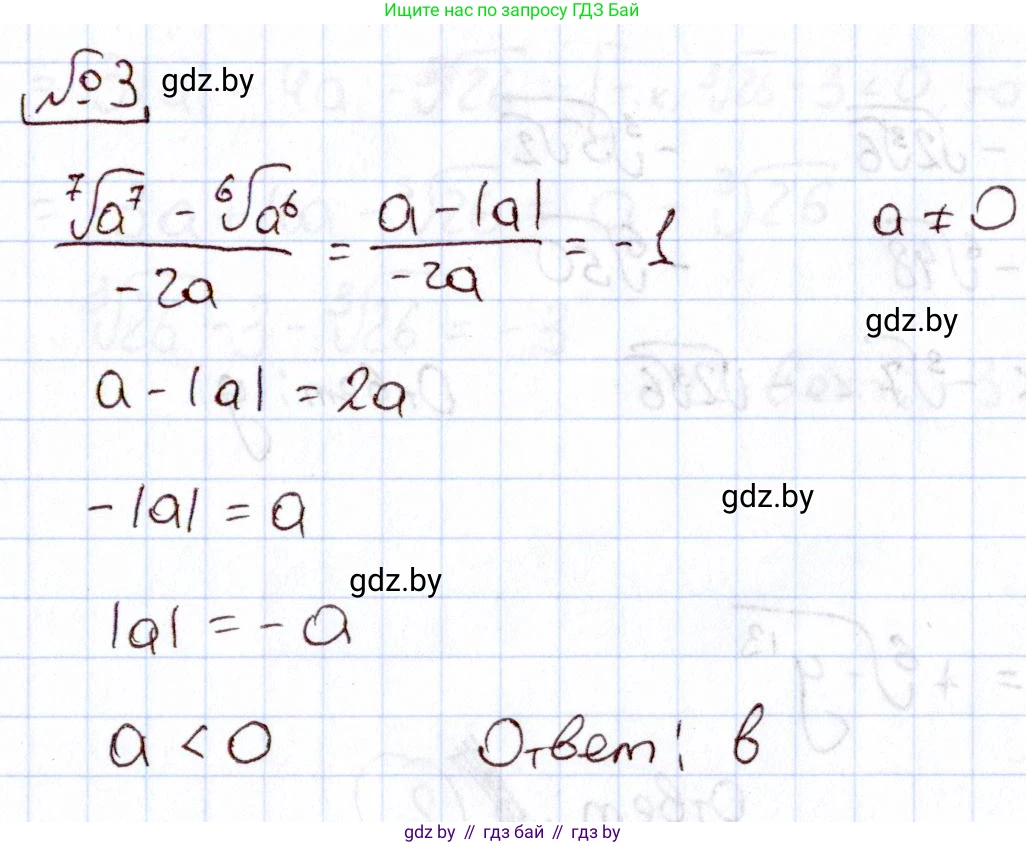 Ищите нас по запросу ГДЗ Бай
№3 gdz.by
(⁷√a⁷ - ⁶√a⁶) / -2a = (a - |a|) / -2a = -1 a ≠ 0
gdz.by
a - |a| = 2a
-|a| = a
gdz.by
gdz.by
|a| = -a
a < 0 Ответ: в
gdz.by // гдз бай // гдз by